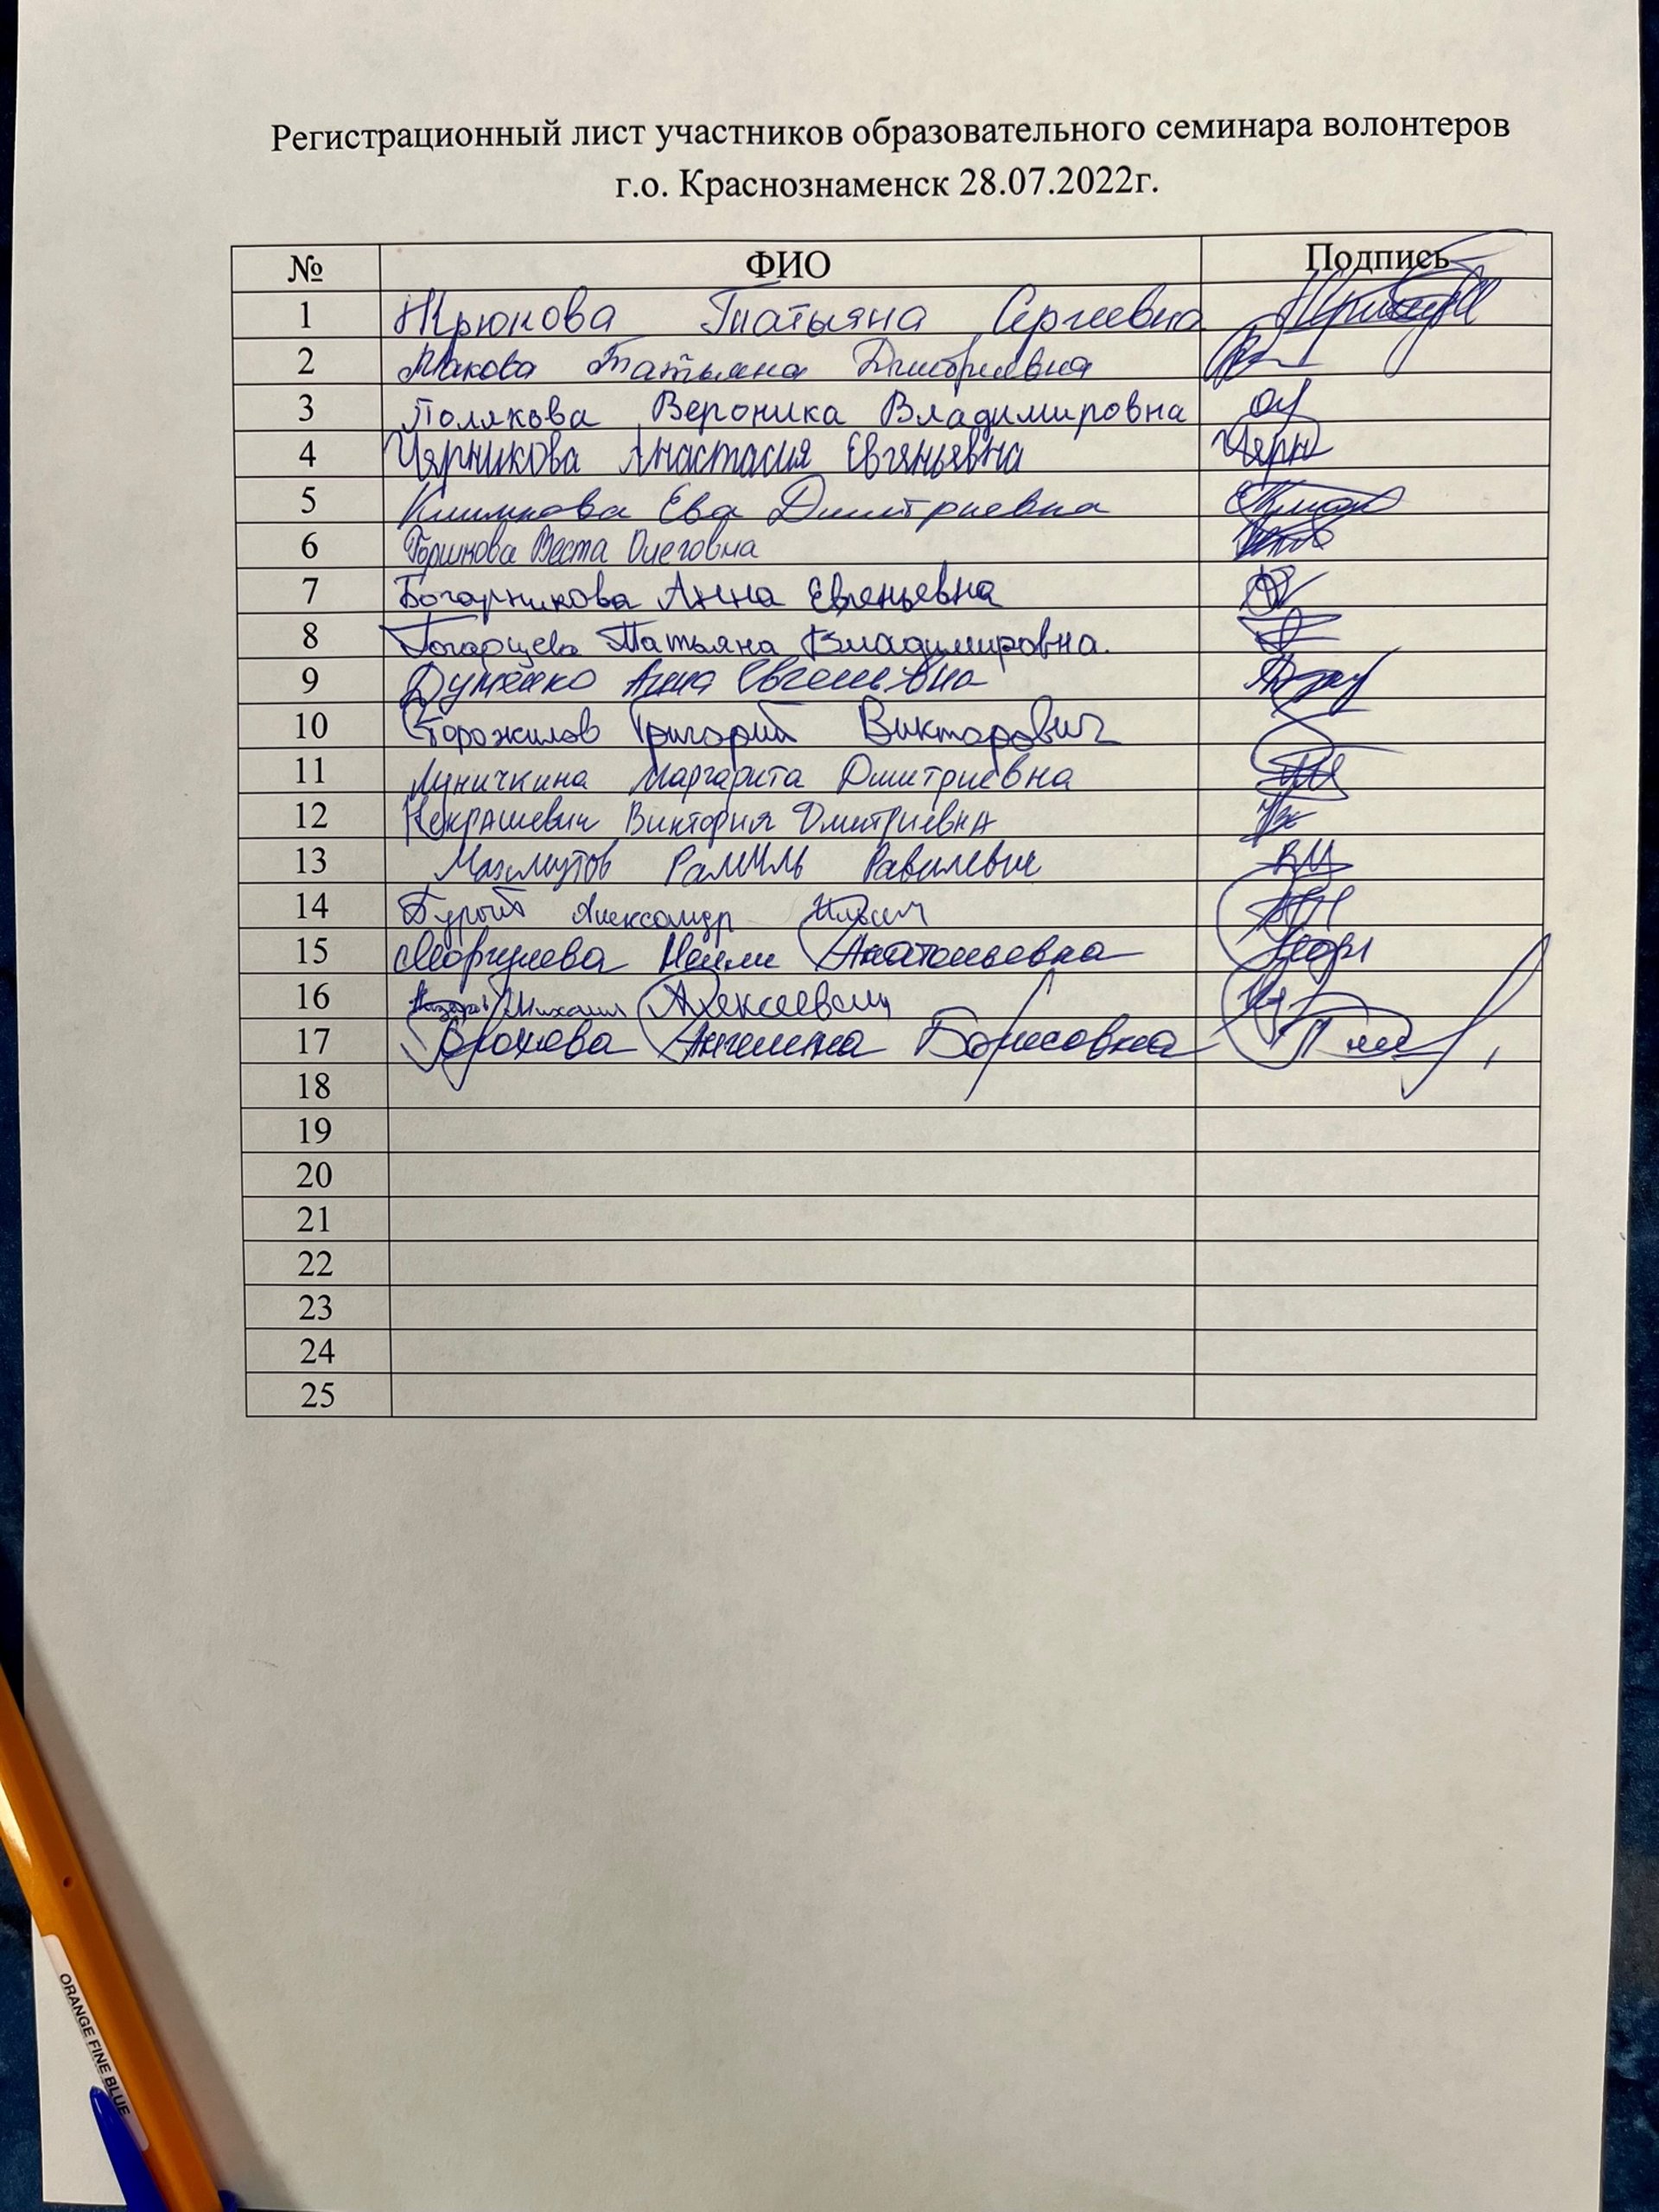 Регистрационный лист участников образовательного семинара волонтеров
г.о. Краснознаменск 28.07.2022г.
№ ФИО Подпись
1 Крюкова Татьяна Сергеевна
2 Макова Татьяна Дмитриевна
3 Полякова Вероника Владимировна
4 Черникова Анастасия Евгеньевна Черн
5 Климкова Ева Дмитриевна
6 Горшкова Веста Олеговна
7 Богарникова Анна Евгеньевна
8 Татьяна Владимировна.
9 Думенко Анна Евгеньевна
10 Сторожилов Григорий Викторович
11 Луничкина Маргарита Дмитриевна
12 Некрашевич Виктория Дмитриевна
13 Махмутов Рамиль Равилевич
14 Александр
15 Моргунова Нелли Анатольевна
16 Михаил Алексеевич
17 Ангелина Борисовна
18
19
20
21
22
23
24
25
ORANGE FINE BLUE